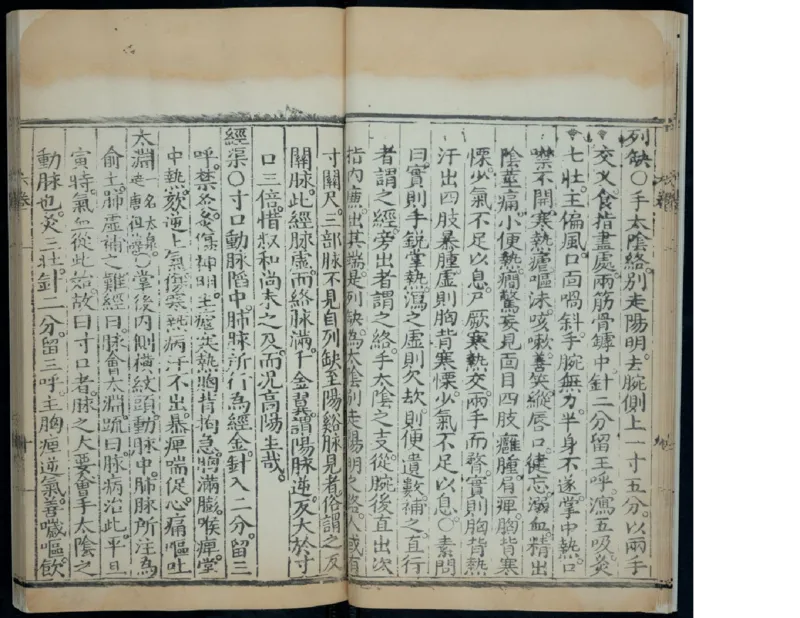 列缺○手太陰絡別走陽明去腕側上一寸五分以兩手
交叉食指盡處兩筋骨罅中針二分留三呼瀉五吸灸
七壯主偏風口面喎斜手腕無力半身不遂掌中熱口
噤不開寒熱瘧嘔沫咳嗽善笑縱唇口健忘溺血精出
陰莖痛小便熱癇驚妄見面目四肢癰腫肩痺胸背寒
慄少氣不足以息尸厥寒熱交兩手而瞀實則胸背熱
汗出四肢暴腫虛則胸背寒慄少氣不足以息○素問
曰實則手銳掌熱瀉之虛則欠㰦則便遺數補之直行
者謂之經旁出者謂之絡手太陰之支從腕後直出次
指內廉出其端是列缺為太陰別走陽明之路人或有
寸關尺三部脉不見自列缺至陽谿脉見者俗謂之反
關脉此經脉虛而絡脉滿千金翼謂陽脉逆反大於寸
口三倍惜叔和尚未之及而況高陽生哉
經渠○寸口動脉陷中肺脉所行為經金針入二分留三
呼禁灸灸傷神明主瘧寒熱胸背拘急胸滿膨喉痺掌
中熱欬逆上氣傷寒熱病汗不出暴痺喘促心痛嘔吐
太淵一名太泉避唐祖諱○掌後內側橫紋頭動脉中肺脉所注為
俞土肺虛補之難經曰脉會太淵疏曰脉病治此平旦
寅時氣血從此始故曰寸口者脉之大要會手太陰之
動脉也灸三壯針二分留三呼主胸痺逆氣善噦嘔飲